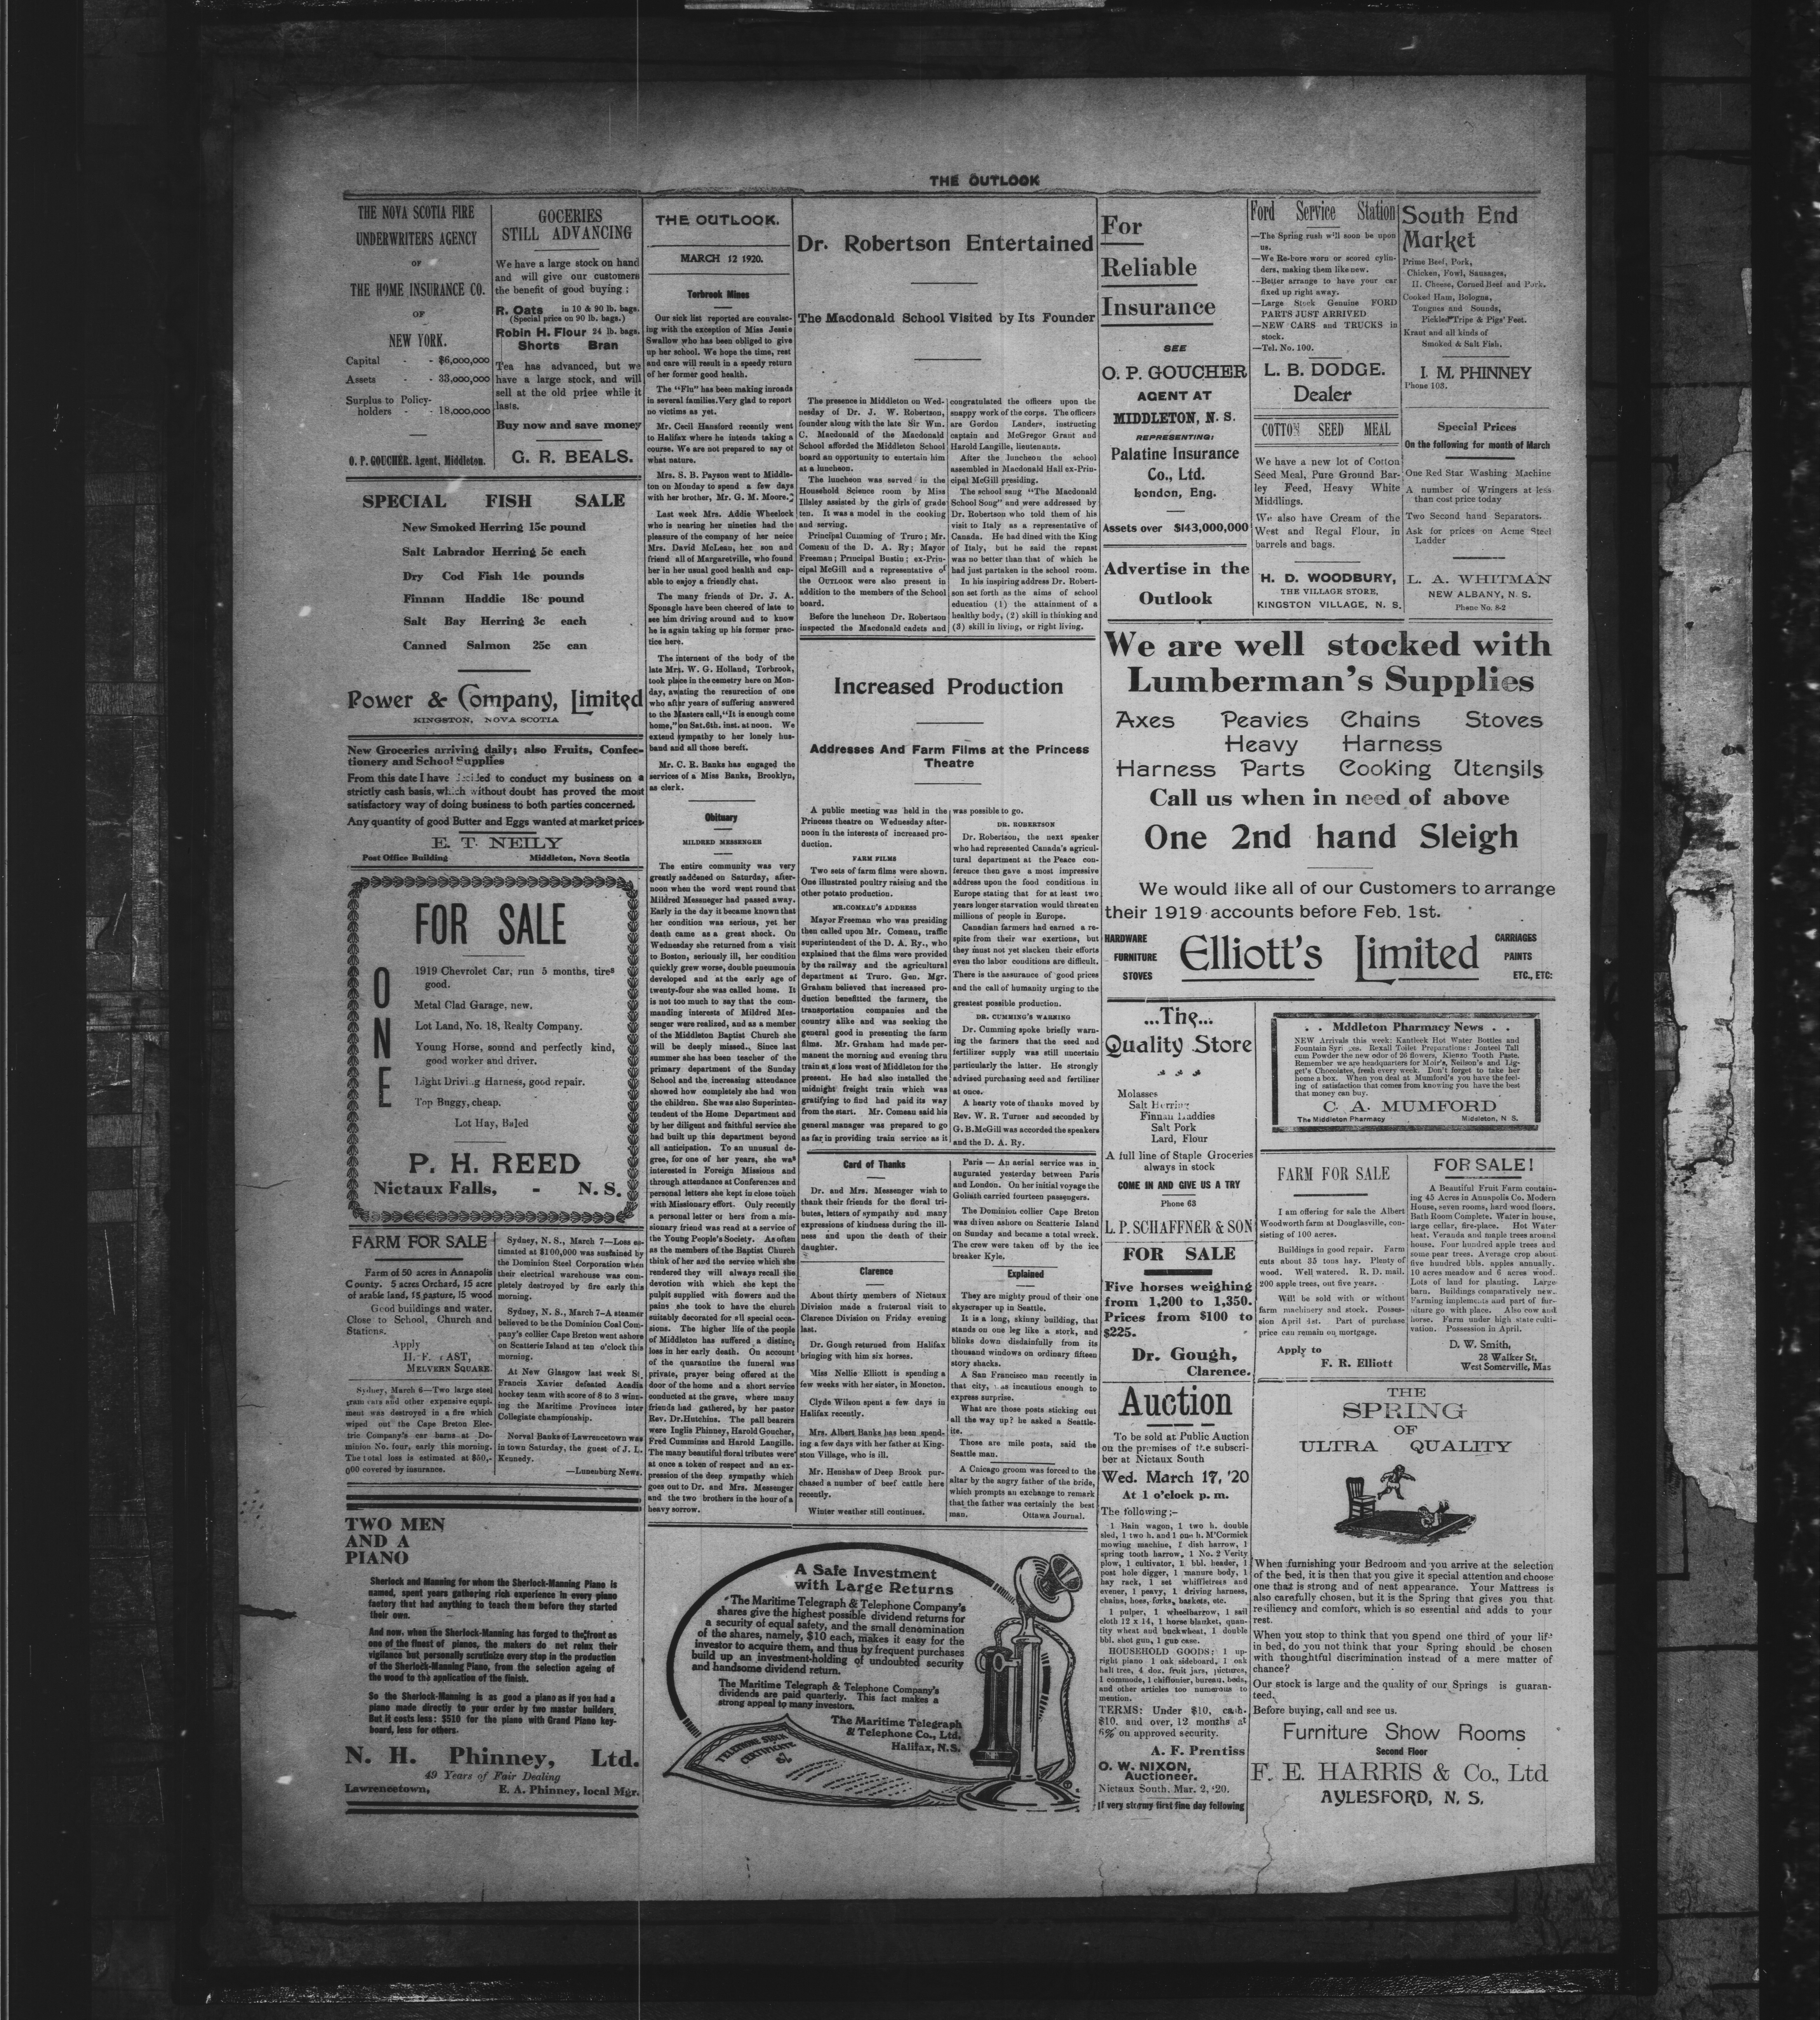 THE OUTLOOK
THE NOVA SCOTIA FIRE
UNDERWRITERS AGENCY
OF
THE HOME INSURANCE CO.
OF
NEW YORK.
Capital - - $6,000,000
Assets - - 33,000,000
Surplus to Policy-
holders - - 18,000,000
O. P. GOUCHER. Agent, Middleton.
GOCERIES
STILL ADVANCING
We have a large stock on hand
and will give our customers
the benefit of good buying ;
R. Oats in 10 & 90 lb. bags.
(Special price on 90 lb. bags.)
Robin H. Flour 24 lb. bags.
Shorts Bran
Tea has advanced, but we
have a large stock, and will
sell at the old price while it
lasts.
Buy now and save money
G. R. BEALS.
SPECIAL FISH SALE
New Smoked Herring 15c pound
Salt Labrador Herring 5c each
Dry Cod Fish 14c pounds
Finnan Haddie 18c pound
Salt Bay Herring 3c each
Canned Salmon 25c can
Power & Company, Limited
KINGSTON, NOVA SCOTIA
New Groceries arriving daily; also Fruits, Confec-
tionery and School Supplies
From this date I have decided to conduct my business on a
strictly cash basis, which without doubt has proved the most
satisfactory way of doing business to both parties concerned.
Any quantity of good Butter and Eggs wanted at market prices.
E. T. NEILY
Post Office Building Middleton, Nova Scotia
FOR SALE
ONE
1919 Chevrolet Car, run 5 months, tires
good.
Metal Clad Garage, new.
Lot Land, No. 18, Realty Company.
Young Horse, sound and perfectly kind,
good worker and driver.
Light Driving Harness, good repair.
Top Buggy, cheap.
Lot Hay, Baled
P. H. REED
Nictaux Falls, - N. S.
FARM FOR SALE
Farm of 50 acres in Annapolis
County. 5 acres Orchard, 15 acre
of arable land, 15 pasture, 15 wood
Good buildings and water.
Close to School, Church and
Stations.
Apply
H. F. EAST,
MELVERN SQUARE.
Sydney, March 6—Two large steel
gram cars and other expensive equpi-
ment was destroyed in a fire which
wiped out the Cape Breton Elec-
tric Company's car barns at Do-
minion No. four, early this morning.
The total loss is estimated at $50,-
000 covered by insurance.
Sydney, N. S., March 7—Loss es-
timated at $100,000 was sustained by
the Dominion Steel Corporation when
their electrical warehouse was com-
pletely destroyed by fire early this
morning.
Sydney, N. S., March 7—A steamer
believed to be the Dominion Coal Com-
pany's collier Cape Breton went ashore
on Scatterie Island at ten o'clock this
morning.
At New Glasgow last week St.
Francis Xavier defeated Acadia
hockey team with score of 8 to 3 winn-
ing the Maritime Provinces inter
Collegiate championship.
Norval Banks of Lawrencetown was
in town Saturday, the guest of J. L.
Kennedy.
—Lunenburg News.
TWO MEN
AND A
PIANO
Sherlock and Manning for whom the Sherlock-Manning Piano is
named, spent years gathering rich experience in every piano
factory that had anything to teach them before they started
their own.
And now, when the Sherlock-Manning has forged to the front as
one of the finest of pianos, the makers do not relax their
vigilance but personally scrutinize every step in the production
of the Sherlock-Manning Piano, from the selection ageing of
the wood to the application of the finish.
So the Sherlock-Manning is as good a piano as if you had a
piano made directly to your order by two master builders.
But it costs less: $510 for the piano with Grand Piano key-
board, less for others.
N. H. Phinney, Ltd.
49 Years of Fair Dealing
Lawrencetown, E. A. Phinney, local Mgr.
THE OUTLOOK.
MARCH 12 1920.
Torbrook Mines
Our sick list reported are convalec-
ing with the exception of Miss Jessie
Swallow who has been obliged to give
up her school. We hope the time, rest
and care will result in a speedy return
of her former good health.
The "Flu" has been making inroads
in several families. Very glad to report
no victims as yet.
Mr. Cecil Hansford recently went
to Halifax where he intends taking a
course. We are not prepared to say of
what nature.
Mrs. S. B. Payson went to Middle-
ton on Monday to spend a few days
with her brother, Mr. G. M. Moore.
Last week Mrs. Addie Wheelock
who is nearing her nineties had the
pleasure of the company of her neice
Mrs. David McLean, her son and
friend all of Margaretville, who found
her in her usual good health and cap-
able to enjoy a friendly chat.
The many friends of Dr. J. A.
Sponagle have been cheered of late to
see him driving around and to know
he is again taking up his former prac-
tice here.
The interment of the body of the
late Mrs. W. G. Holland, Torbrook,
took place in the cemetry here on Mon-
day, awating the resurection of one
who after years of suffering answered
to the Masters call, "It is enough come
home," on Sat. 6th. inst. at noon. We
extend sympathy to her lonely hus-
band and all those bereft.
Mr. C. R. Banks has engaged the
services of a Miss Banks, Brooklyn,
as clerk.
Obituary
MILDRED MESSENGER
The entire community was very
greatly saddened on Saturday, after-
noon when the word went round that
Mildred Messneger had passed away.
Early in the day it became known that
her condition was serious, yet her
death came as a great shock. On
Wednesday she returned from a visit
to Boston, seriously ill, her condition
quickly grew worse, double pneumonia
developed and at the early age of
twenty-four she was called home. It
is not too much to say that the com-
manding interests of Mildred Mes-
senger were realized, and as a member
of the Middleton Baptist Church she
will be deeply missed. Since last
summer she has been teacher of the
primary department of the Sunday
School and the increasing attendance
showed how completely she had won
the children. She was also Superinten-
tendent of the Home Department and
by her diligent and faithful service she
had built up this department beyond
all anticipation. To an unusual de-
gree, for one of her years, she was
interested in Foreign Missions and
through attendance at Conferences and
personal letters she kept in close touch
with Missionary effort. Only recently
a personal letter or hers from a mis-
sionary friend was read at a service of
the Young People's Society. As often
as the members of the Baptist Church
think of her and the service which she
rendered they will always recall the
devotion with which she kept the
pulpit supplied with flowers and the
pains she took to have the church
suitably decorated for all special occa-
sions. The higher life of the people
of Middleton has suffered a distinct
loss in her early death. On account
of the quarantine the funeral was
private, prayer being offered at the
door of the home and a short service
conducted at the grave, where many
friends had gathered, by her pastor
Rev. Dr. Hutchins. The pall bearers
were Inglis Phinney, Harold Goucher,
Fred Cummins and Harold Langille.
The many beautiful floral tributes were
at once a token of respect and an ex-
pression of the deep sympathy which
goes out to Dr. and Mrs. Messenger
and the two brothers in the hour of a
heavy sorrow.
Dr. Robertson Entertained
The Macdonald School Visited by Its Founder
The presence in Middleton on Wed-
nesday of Dr. J. W. Robertson,
founder along with the late Sir Wm.
C. Macdonald of the Macdonald
School afforded the Middleton School
board an opportunity to entertain him
at a luncheon.
The luncheon was served in the
Household Science room by Miss
Illsley assisted by the girls of grade
ten. It was a model in the cooking
and serving.
Principal Cumming of Truro; Mr.
Comeau of the D. A. Ry; Mayor
Freeman; Principal Bustin; ex-Prin-
cipal McGill and a representative of
the OUTLOOK were also present in
addition to the members of the School
board.
Before the luncheon Dr. Robertson
inspected the Macdonald cadets and
congratulated the officers upon the
snappy work of the corps. The officers
are Gordon Landers, instructing
captain and McGregor Grant and
Harold Langille, lieutenants.
After the luncheon the school
assembled in Macdonald Hall ex-Prin-
cipal McGill presiding.
The school sang "The Macdonald
School Song" and were addressed by
Dr. Robertson who told them of his
visit to Italy as a representative of
Canada. He had dined with the King
of Italy, but he said the repast
was no better than that of which he
had just partaken in the school room.
In his inspiring address Dr. Robert-
son set forth as the aims of school
education (1) the attainment of a
healthy body, (2) skill in thinking and
(3) skill in living, or right living.
Increased Production
Addresses And Farm Films at the Princess
Theatre
A public meeting was held in the
Princess theatre on Wednesday after-
noon in the interests of increased pro-
duction.
FARM FILMS
Two sets of farm films were shown.
One illustrated poultry raising and the
other potato production.
MR. COMEAU'S ADDRESS
Mayor Freeman who was presiding
then called upon Mr. Comeau, traffic
superintendent of the D. A. Ry., who
explained that the films were provided
by the railway and the agricultural
department at Truro. Gen. Mgr.
Graham believed that increased pro-
duction benefitted the farmers, the
transportation companies and the
country alike and was seeking the
general good in presenting the farm
films. Mr. Graham had made per-
manent the morning and evening thru
train at a loss west of Middleton for the
present. He had also installed the
midnight freight train which was
gratifying to find had paid its way
from the start. Mr. Comeau said his
general manager was prepared to go
as far in providing train service as it
was possible to go.
DR. ROBERTSON
Dr. Robertson, the next speaker
who had represented Canada's agricul-
tural department at the Peace con-
ference then gave a most impressive
address upon the food conditions in
Europe stating that for at least two
years longer starvation would threaten
millions of people in Europe.
Canadian farmers had earned a re-
spite from their war exertions, but
they must not yet slacken their efforts
even tho labor conditions are difficult.
There is the assurance of good prices
and the call of humanity urging to the
greatest possible production.
DR. CUMMING'S WARNING
Dr. Cumming spoke briefly warn-
ing the farmers that the seed and
fertilizer supply was still uncertain
particularly the latter. He strongly
advised purchasing seed and fertilizer
at once.
A hearty vote of thanks moved by
Rev. W. R. Turner and seconded by
G. B. McGill was accorded the speakers
and the D. A. Ry.
Card of Thanks
Dr. and Mrs. Messenger wish to
thank their friends for the floral tri-
butes, letters of sympathy and many
expressions of kindness during the ill-
ness and upon the death of their
daughter.
Clarence
About thirty members of Nictaux
Division made a fraternal visit to
Clarence Division on Friday evening
last.
Dr. Gough returned from Halifax
bringing with him six horses.
Miss Nellie Elliott is spending a
few weeks with her sister, in Moncton.
Clyde Wilson spent a few days in
Halifax recently.
Mrs. Albert Banks has been spend-
ing a few days with her father at King-
ston Village, who is ill.
Mr. Henshaw of Deep Brook pur-
chased a number of beef cattle here
recently.
Winter weather still continues.
Paris — An aerial service was in
augurated yesterday between Paris
and London. On her initial voyage the
Goliath carried fourteen passengers.
The Dominion collier Cape Breton
was driven ashore on Scatterie Island
on Sunday and became a total wreck.
The crew were taken off by the ice
breaker Kyle.
Explained
They are mighty proud of their one
skyscraper up in Seattle.
It is a long, skinny building, that
stands on one leg like a stork, and
blinks down disdainfully from its
thousand windows on ordinary fifteen
story shacks.
A San Francisco man recently in
that city, was incautious enough to
express surprise.
What are those posts sticking out
all the way up? he asked a Seattle-
ite.
Those are mile posts, said the
Seattle man.
A Chicago groom was forced to the
altar by the angry father of the bride,
which prompts an exchange to remark
that the father was certainly the best
man. Ottawa Journal.
A Safe Investment
with Large Returns
The Maritime Telegraph & Telephone Company's
shares give the highest possible dividend returns for
a security of equal safety, and the small denomination
of the shares, namely, $10 each, makes it easy for the
investor to acquire them, and thus by frequent purchases
build up an investment-holding of undoubted security
and handsome dividend return.
The Maritime Telegraph & Telephone Company's
dividends are paid quarterly. This fact makes a
strong appeal to many investors.
The Maritime Telegraph
& Telephone Co., Ltd.
Halifax, N.S.
TELEPHONE STOCK
CERTIFICATE
For
Reliable
Insurance
SEE
O. P. GOUCHER
AGENT AT
MIDDLETON, N. S.
REPRESENTING:
Palatine Insurance
Co., Ltd.
London, Eng.
Assets over $143,000,000
Advertise in the
Outlook
Ford Service Station
—The Spring rush will soon be upon
us.
—We Re-bore worn or scored cylin-
ders, making them like new.
—Better arrange to have your car
fixed up right away.
—Large Stock Genuine FORD
PARTS JUST ARRIVED
—NEW CARS and TRUCKS in
stock.
—Tel. No. 100.
L. B. DODGE.
Dealer
COTTON SEED MEAL
We have a new lot of Cotton
Seed Meal, Pure Ground Bar-
ley Feed, Heavy White
Middlings.
We also have Cream of the
West and Regal Flour, in
barrels and bags.
H. D. WOODBURY,
THE VILLAGE STORE,
KINGSTON VILLAGE, N. S.
South End
Market
Prime Beef, Pork,
Chicken, Fowl, Sausages,
H. Cheese, Corned Beef and Pork.
Cooked Ham, Bologna,
Tongues and Sounds,
Pickled Tripe & Pigs' Feet.
Kraut and all kinds of
Smoked & Salt Fish.
I. M. PHINNEY
Phone 103.
Special Prices
On the following for month of March
One Red Star Washing Machine
A number of Wringers at less
than cost price today
Two Second hand Separators.
Ask for prices on Acme Steel
Ladder
L. A. WHITMAN
NEW ALBANY, N. S.
Phone No. 8-2
We are well stocked with
Lumberman's Supplies
Axes Peavies Chains Stoves
Heavy Harness
Harness Parts Cooking Utensils
Call us when in need of above
One 2nd hand Sleigh
We would like all of our Customers to arrange
their 1919 accounts before Feb. 1st.
HARDWARE
FURNITURE
STOVES
Elliott's Limited
CARRIAGES
PAINTS
ETC., ETC:
...The...
Quality Store
Molasses
Salt Herring
Finnan Haddies
Salt Pork
Lard, Flour
A full line of Staple Groceries
always in stock
COME IN AND GIVE US A TRY
Phone 63
L. P. SCHAFFNER & SON
FOR SALE
Five horses weighing
from 1,200 to 1,350.
Prices from $100 to
$225.
Dr. Gough,
Clarence.
Auction
To be sold at Public Auction
on the premises of the subscri-
ber at Nictaux South
Wed. March 17, '20
At 1 o'clock p. m.
The following :-
1 Bain wagon, 1 two h. double
sled, 1 two h. and 1 one h. M'Cormick
mowing machine, 1 dish harrow, 1
spring tooth harrow, 1 No. 2 Verity
plow, 1 cultivator, 1 bbl. header, 1
post hole digger, 1 manure body, 1
hay rack, 1 set whiffletrees and
evener, 1 peavy, 1 driving harness,
chains, hoes, forks, baskets, etc.
1 pulper, 1 wheelbarrow, 1 sail
cloth 12 x 14, 1 horse blanket, quan-
tity wheat and buckwheat, 1 double
bbl. shot gun, 1 gun case.
HOUSEHOLD GOODS: 1 up-
right piano 1 oak sideboard, 1 oak
hall tree, 4 doz. fruit jars, pictures,
1 commode, 1 chiffonier, bureau, beds,
and other articles too numerous to
mention.
TERMS: Under $10, cash.
$10. and over, 12 months at
6% on approved security.
A. F. Prentiss
O. W. NIXON,
Auctioneer.
Nictaux South. Mar. 2, '20.
If very stormy first fine day following
. . Mddleton Pharmacy News . .
NEW Arrivals this week: Kantleek Hot Water Bottles and
Fountain Syringes. Rexall Toilet Preparations: Jonteel Tall
cum Powder the new odor of 26 flowers, Klenzo Tooth Paste.
Remember we are headquarters for Moir's, Neilson's and Lig-
get's Chocolates, fresh every week. Don't forget to take her
home a box. When you deal at Mumford's you have the feel-
ing of satisfaction that comes from knowing you have the best
that money can buy.
C. A. MUMFORD
The Middleton Pharmacy Middleton, N. S.
FARM FOR SALE
I am offering for sale the Albert
Woodworth farm at Douglasville, con-
sisting of 100 acres.
Buildings in good repair. Farm
cuts about 35 tons hay. Plenty of
wood. Well watered. R. D. mail.
200 apple trees, out five years.
Will be sold with or without
farm machinery and stock. Posses-
sion April 4st. Part of purchase
price can remain on mortgage.
Apply to
F. R. Elliott
FOR SALE!
A Beautiful Fruit Farm contain-
ing 45 Acres in Annapolis Co. Modern
House, seven rooms, hard wood floors.
Bath Room Complete. Water in house,
large cellar, fire-place. Hot Water
heat. Veranda and maple trees around
house. Four hundred apple trees and
some pear trees. Average crop about
five hundred bbls. apples annually.
10 acres meadow and 6 acres wood.
Lots of land for planting. Large
barn. Buildings comparatively new.
Farming implements and part of fur-
niture go with place. Also cow and
horse. Farm under high state culti-
vation. Possession in April.
D. W. Smith,
28 Walker St,
West Somerville, Mas
THE
SPRING
OF
ULTRA QUALITY
When furnishing your Bedroom and you arrive at the selection
of the bed, it is then that you give it special attention and choose
one that is strong and of neat appearance. Your Mattress is
also carefully chosen, but it is the Spring that gives you that
resiliency and comfort, which is so essential and adds to your
rest.
When you stop to think that you spend one third of your life
in bed, do you not think that your Spring should be chosen
with thoughtful discrimination instead of a mere matter of
chance?
Our stock is large and the quality of our Springs is guaran-
teed.
Before buying, call and see us.
Furniture Show Rooms
Second Floor
F. E. HARRIS & Co., Ltd
AYLESFORD, N. S.